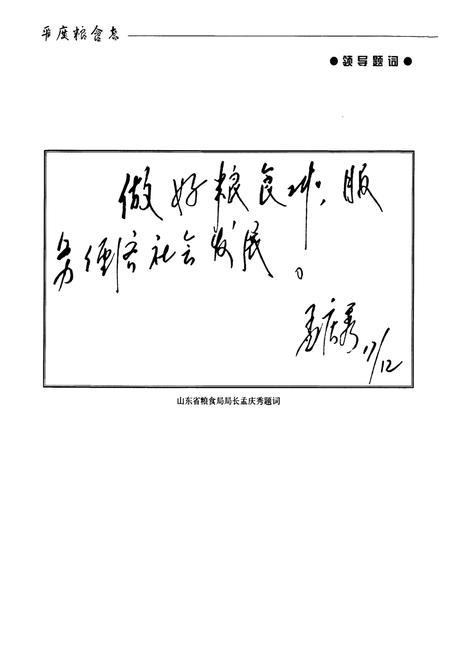 平度粮食志
●领导题词●
做好粮食工作，服
务经济社会发展。
孟庆秀 17/12
山东省粮食局局长孟庆秀题词